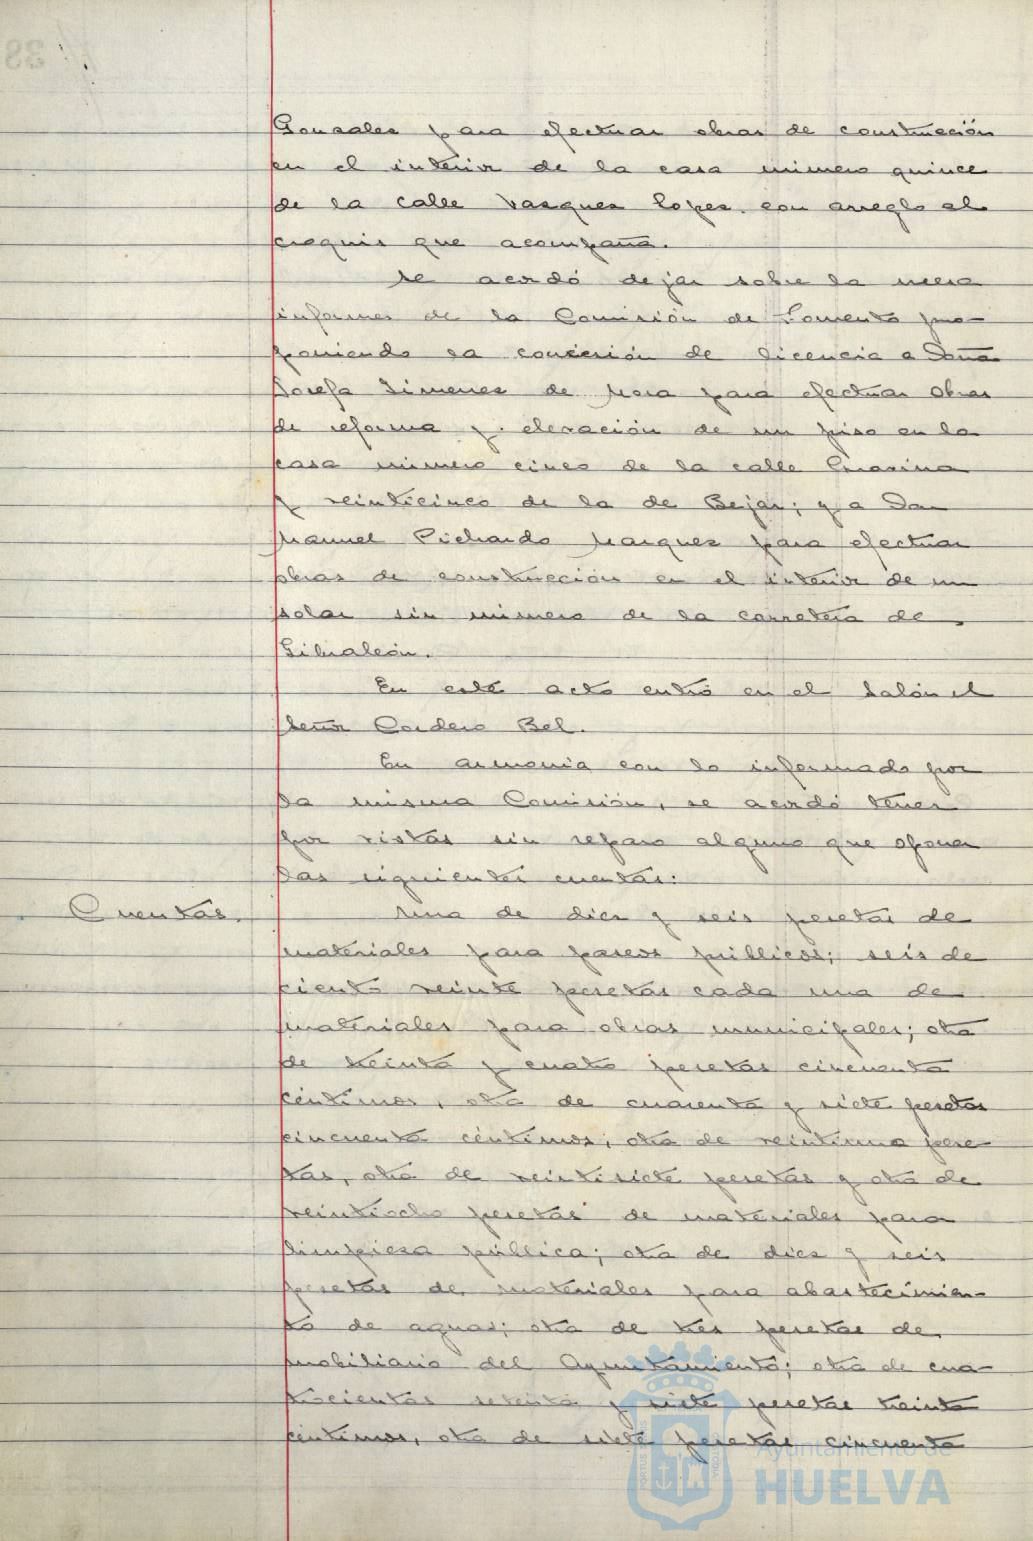 Gonzalez para efectuar obras de construcción
en el interior de la casa número quince
de la calle Vazquez Lopez, con arreglo al
croquis que acompaña.
Se acordó dejar sobre la mesa
informes de la Comisión de Fomento pro-
poniendo la concesión de licencia a Doña
Josefa Jimenez de Mora para efectuar obras
de reforma y elevación de un piso en la
casa número cinco de la calle
y veinticinco de la de Bejar; y a Don
Manuel Pichardo Marquez para efectuar
obras de construcción en el interior de un
solar sin número de la carretera de
Gibraleón.
En este acto entró en el Salón el
Señor Cordero Bel.
En armonia con lo informado por
la misma Comisión, se acordó tener
por vistas sin reparo alguno que oponer
las siguientes cuentas:
Cuentas. Una de diez y seis pesetas de
materiales para paseos públicos; seis de
ciento veinte pesetas cada una de
materiales para obras municipales; otra
de treinta y cuatro pesetas cincuenta
céntimos, otra de cuarenta y siete pesetas
cincuenta céntimos; otra de veintiuna pese-
tas, otra de veintisiete pesetas y otra de
veintiocho pesetas de materiales para
limpieza pública; otra de diez y seis
pesetas de materiales para abastecimien-
to de aguas; otra de tres pesetas de
mobiliario del Ayuntamiento; otra de cua-
trocientas setenta y siete pesetas treinta
céntimos, otra de siete pesetas cincuenta
Ayuntamiento de
HUELVA